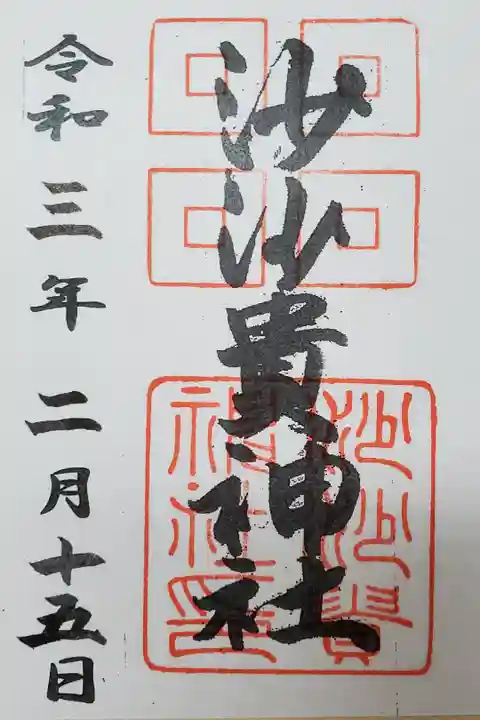 沙沙貴神社
沙沙貴
神社印
令和三年 二月十五日